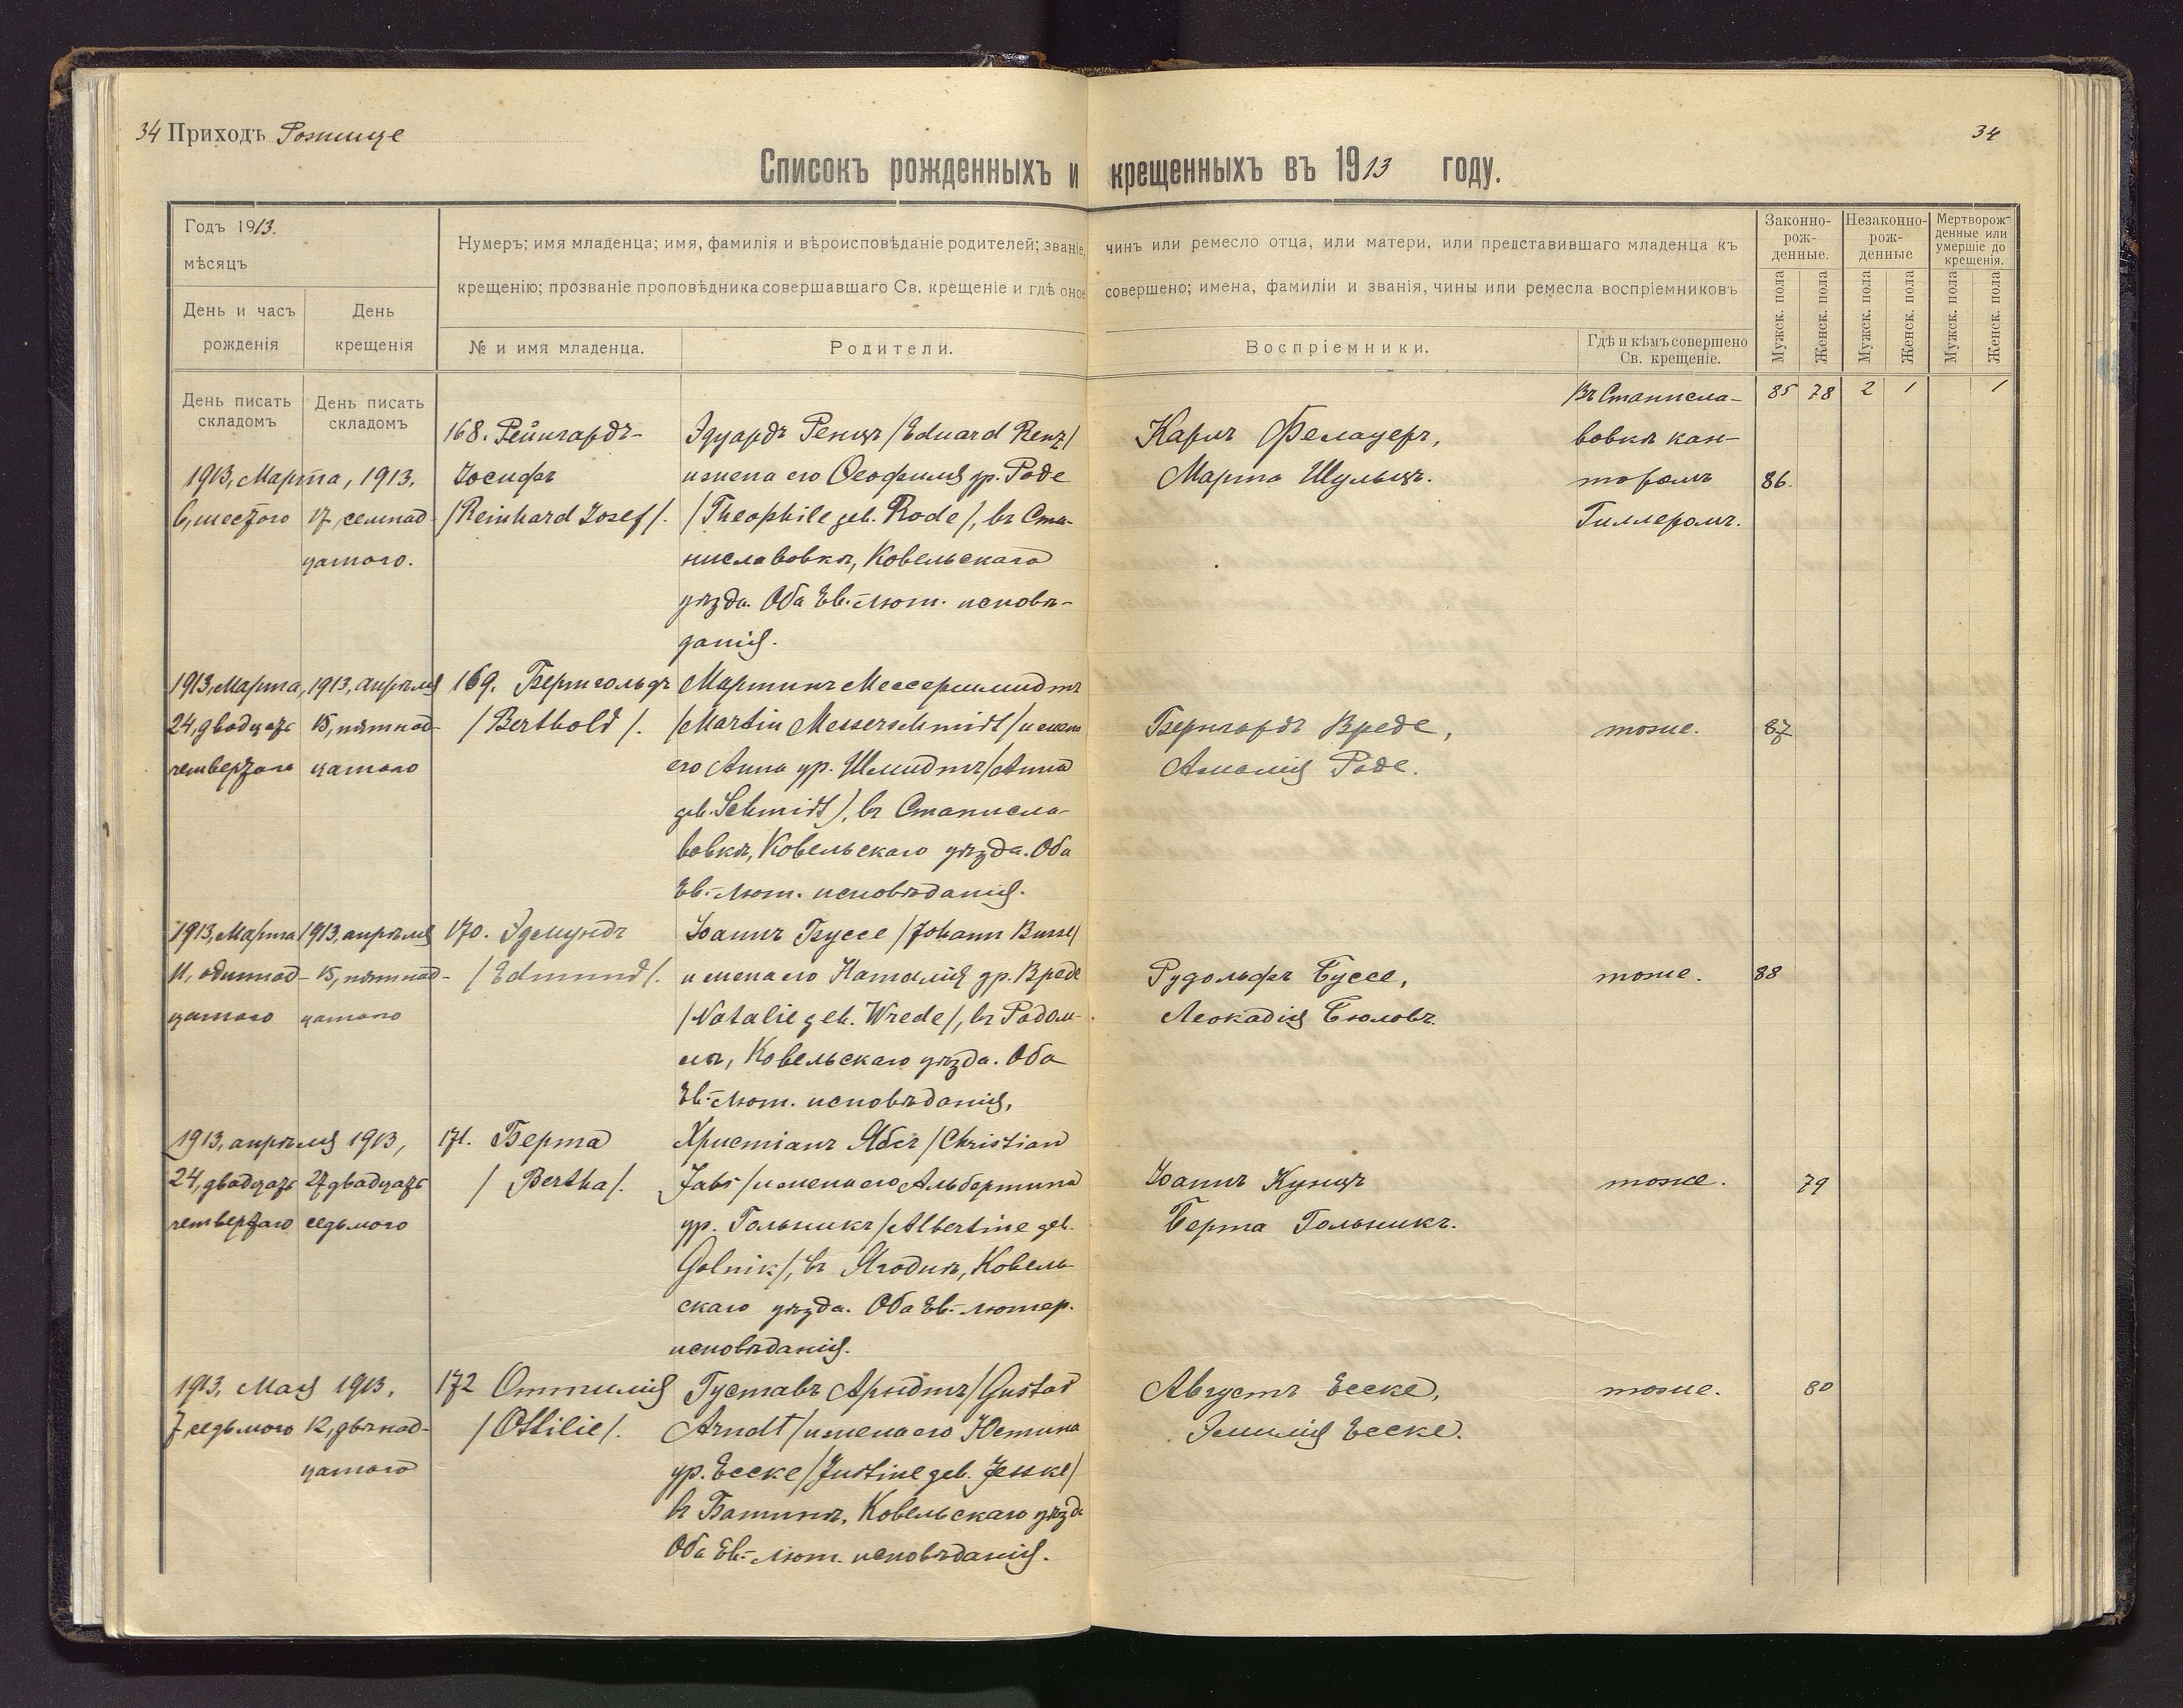 34 Приходъ Рожище
34
Списокъ рожденныхъ и крещенныхъ въ 1913 году.
Годъ 1913.
мѣсяцъ
День и часъ рожденія
День крещенія
Нумеръ; имя младенца; имя, фамилія и вѣроисповѣданіе родителей; званіе, чинъ или ремесло отца, или матери, или представившаго младенца къ
крещенію; прозваніе проповѣдника совершавшаго Св. крещеніе и гдѣ оное совершено; имена, фамиліи и званія, чины или ремесла воспріемниковъ
№ и имя младенца.
Родители.
Воспріемники.
Гдѣ и кѣмъ совершено
Св. крещеніе.
Законно-
рож-
денные.
Незаконно-
рож-
денные
Мертворож-
денные или
умершіе до
крещенія.
Мужск. пола
Женск. пола
Мужск. пола
Женск. пола
Мужск. пола
Женск. пола
День писать
складомъ
День писать
складомъ
85 78 2 1 1
1913, Марта, 1913.
6, шестого
17, семнад-
цатого.
168. Рейнгардъ-
Іосифъ
/Reinhard Josef/.
Эдуардъ Ренцъ /Eduard Renz/
и жена его Ѳеофилія ур. Роде
/Theophile geb. Rode/, въ Ста-
ниславовкѣ, Ковельскаго
уѣзда. Оба Ев.-лют. исповѣ-
данія.
Карлъ Фелауеръ,
Марта Шульцъ.
Въ Станисла-
вовкѣ кан-
торомъ
Гиллеромъ.
86.
1913, Марта,
24, двадцать
четвертаго
1913, апрѣля
15, пятнад-
цатаго
169. Бертгольдъ
/Berthold/.
Мартинъ Мессершмидтъ
/Martin Messerschmidt/ и жена
его Анна ур. Шмидтъ /Anna
geb. Schmidt/, въ Станисла-
вовкѣ, Ковельскаго уѣзда. Оба
Ев.-лют. исповѣданія.
Бернгардъ Вреде,
Амалія Роде.
тоже.
87
1913, Марта
11, одиннад-
цатаго
1913, апрѣля
15, пятнад-
цатаго
170. Эдмундъ
/Edmund/.
Іоаннъ Буссе /Johann Busse/
и жена его Наталія ур. Вреде
/Natalie geb. Wrede/, въ Радом-
лѣ, Ковельскаго уѣзда. Оба
Ев.-лют. исповѣданія,
Рудольфъ Буссе,
Леокадія Бюловъ.
тоже.
88
1913, апрѣля 1913,
24, двадцать
четвертаго
27 двадцать
седьмого
171. Берта
/Bertha/.
Христіанъ Ябсъ /Christian
Jabs/ и жена его Альбертина
ур. Гольникъ /Albertine geb.
Golnik/, въ Ягоднѣ, Ковель-
скаго уѣзда. Оба Ев.-лютер.
исповѣданія.
Іоаннъ Кунцъ
Берта Гольникъ.
тоже.
79
1913, Мая 1913,
7 седьмого
12, двѣнад-
цатаго
172 Оттилія
/Ottilie/.
Густавъ Арндтъ /Gustav
Arndt/ и жена его Юстина
ур. Еске /Justine geb. Jesske/
въ Батинѣ, Ковельскаго уѣзда
Оба Ев.-лют. исповѣданія.
Августъ Ееске,
Эмилія Ееске.
тоже.
80